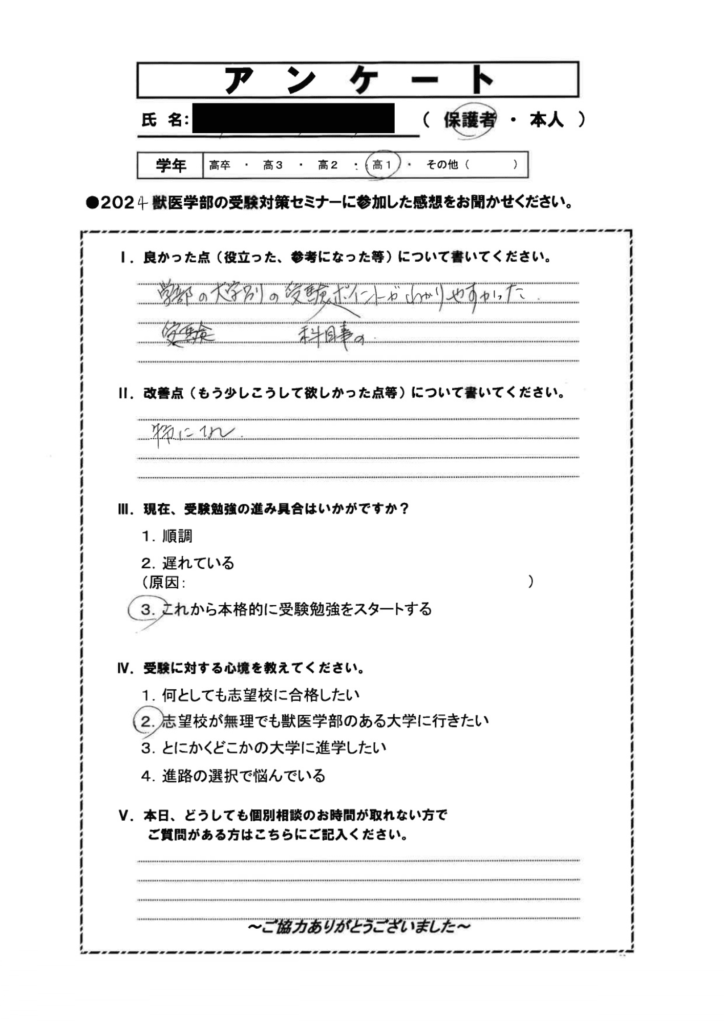 アンケート
氏 名: ( 保護者 ・ 本人 )
学年 高卒 ・ 高3 ・ 高2 ・ 高1 ・ その他 ( )
●2024獣医学部の受験対策セミナーに参加した感想をお聞かせください。
Ⅰ. 良かった点(役立った、参考になった等)について書いてください。
学部の大学別の受験ポイントがわかりやすかった.
受験 科目事の
Ⅱ. 改善点(もう少しこうして欲しかった点等)について書いてください。
特になし.
Ⅲ. 現在、受験勉強の進み具合はいかがですか?
1. 順調
2. 遅れている
(原因: )
3. これから本格的に受験勉強をスタートする
Ⅳ. 受験に対する心境を教えてください。
1. 何としても志望校に合格したい
2. 志望校が無理でも獣医学部のある大学に行きたい
3. とにかくどこかの大学に進学したい
4. 進路の選択で悩んでいる
Ⅴ. 本日、どうしても個別相談のお時間が取れない方で
ご質問がある方はこちらにご記入ください。
~ご協力ありがとうございました~